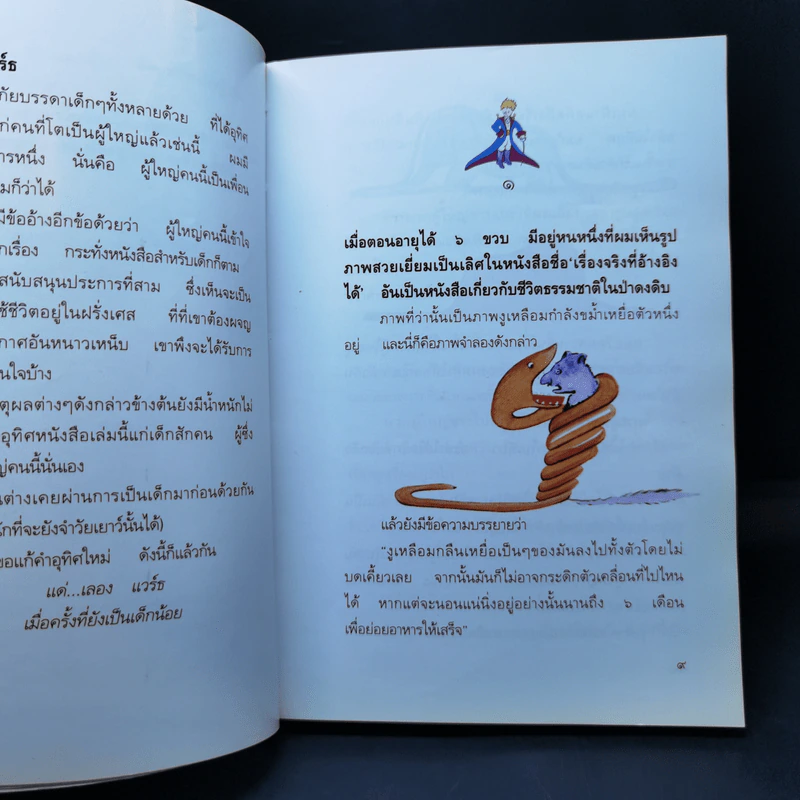 ร์ธ
ภัยบรรดาเด็กๆทั้งหลายด้วย ที่ได้อุทิศ
ก่คนที่โตเป็นผู้ใหญ่แล้วเช่นนี้ ผมมี
ารหนึ่ง นั่นคือ ผู้ใหญ่คนนี้เป็นเพื่อน
มก็ว่าได้
มีข้ออ้างอีกข้อด้วยว่า ผู้ใหญ่คนนี้เข้าใจ
กเรื่อง กระทั่งหนังสือสำหรับเด็กก็ตาม
สนับสนุนประการที่สาม ซึ่งเห็นจะเป็น
ช้ชีวิตอยู่ในฝรั่งเศส ที่ที่เขาต้องผจญ
กาศอันหนาวเหน็บ เขาพึงจะได้รับการ
นใจบ้าง
ตุผลต่างๆดังกล่าวข้างต้นยังมีน้ำหนักไม่
อุทิศหนังสือเล่มนี้แก่เด็กสักคน ผู้ซึ่ง
ญ่คนนี้นั่นเอง
นต่างเคยผ่านการเป็นเด็กมาก่อนด้วยกัน
นักที่จะยังจำวัยเยาว์นั้นได้)
ขอแก้คำอุทิศใหม่ ดังนี้ก็แล้วกัน
แด่...เลออง แวร์ธ
เมื่อครั้งที่ยังเป็นเด็กน้อย
๑
เมื่อตอนอายุได้ ๖ ขวบ มีอยู่หนหนึ่งที่ผมเห็นรูป
ภาพสวยเยี่ยมเป็นเลิศในหนังสือชื่อ‘เรื่องจริงที่อ้างอิง
ได้’ อันเป็นหนังสือเกี่ยวกับชีวิตธรรมชาติในป่าดงดิบ
ภาพที่ว่านั้นเป็นภาพงูเหลือมกำลังขม้ำเหยื่อตัวหนึ่ง
อยู่ และนี่ก็คือภาพจำลองดังกล่าว
แล้วยังมีข้อความบรรยายว่า
"งูเหลือมกลืนเหยื่อเป็นๆของมันลงไปทั้งตัวโดยไม่
บดเคี้ยวเลย จากนั้นมันก็ไม่อาจกระดิกตัวเคลื่อนที่ไปไหน
ได้ หากแต่จะนอนแน่นิ่งอยู่อย่างนั้นนานถึง ๖ เดือน
เพื่อย่อยอาหารให้เสร็จ"
๙